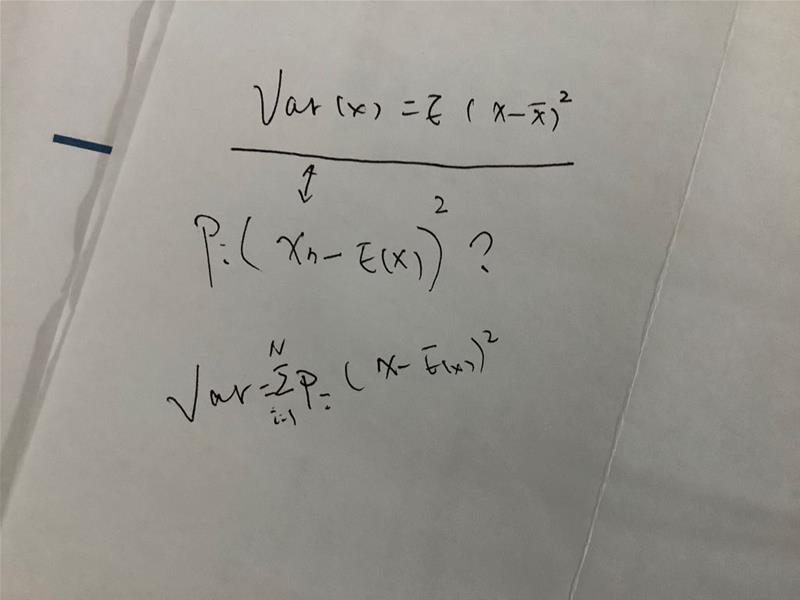 Var(x) = E (x-x̄)²
↕
Pᵢ(xₙ - E(x))² ?
Var = Σᵢ₌₁ᴺ Pᵢ (x - E(x))²